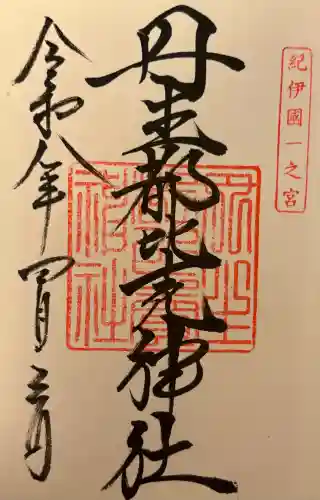 紀伊國一之宮
丹生都比売神社
令和八年四月三日